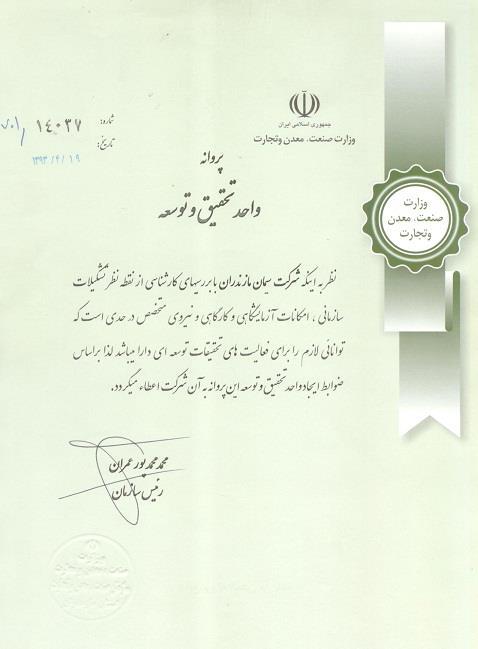 جمهوری اسلامی ایران
وزارت صنعت، معدن وتجارت
شماره: ۱۴۰۳۷
تاریخ: ۱۳۹۳/۴/۱۹
پروانه
واحد تحقیق و توسعه
وزارت
صنعت، معدن
وتجارت
نظر به اینکه شرکت سیمان مازندران با بررسیهای کارشناسی از نقطه نظر تشکیلات
سازمانی ، امکانات آزمایشگاهی و کارگاهی و نیروی متخصص در حدی است که
توانائی لازم را برای فعالیت های تحقیقات توسعه ای دارا میباشد لذا براساس
ضوابط ایجاد واحد تحقیق و توسعه این پروانه به آن شرکت اعطاء میگردد.
محمد محمد پور عمران
رئیس سازمان